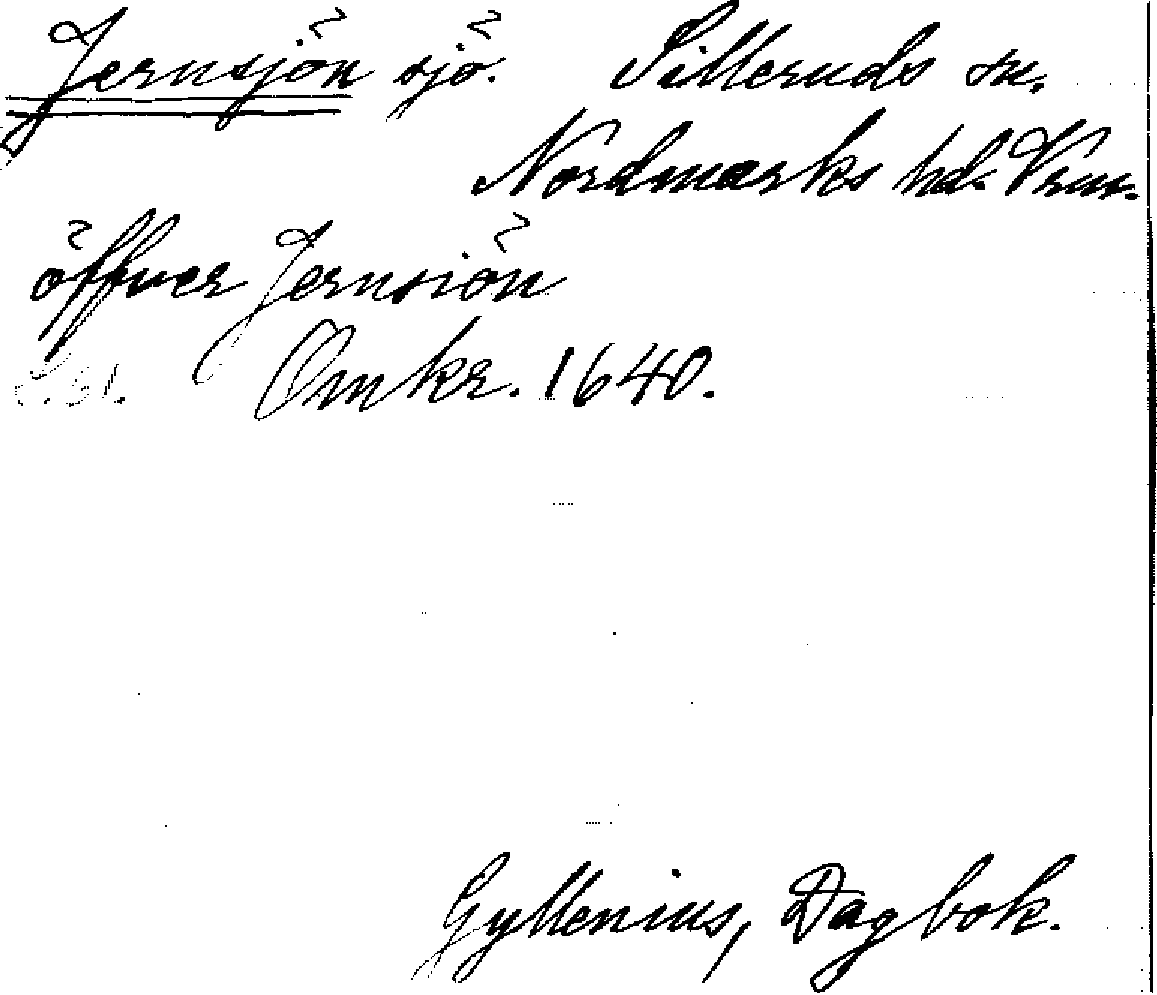 Jernsjön sjö. Silleruds sn.
Nordmarks hd. Vrm.
öffuer Jernsiön
S. 31. Omkr. 1640.
Gyllenius, Dagbok.